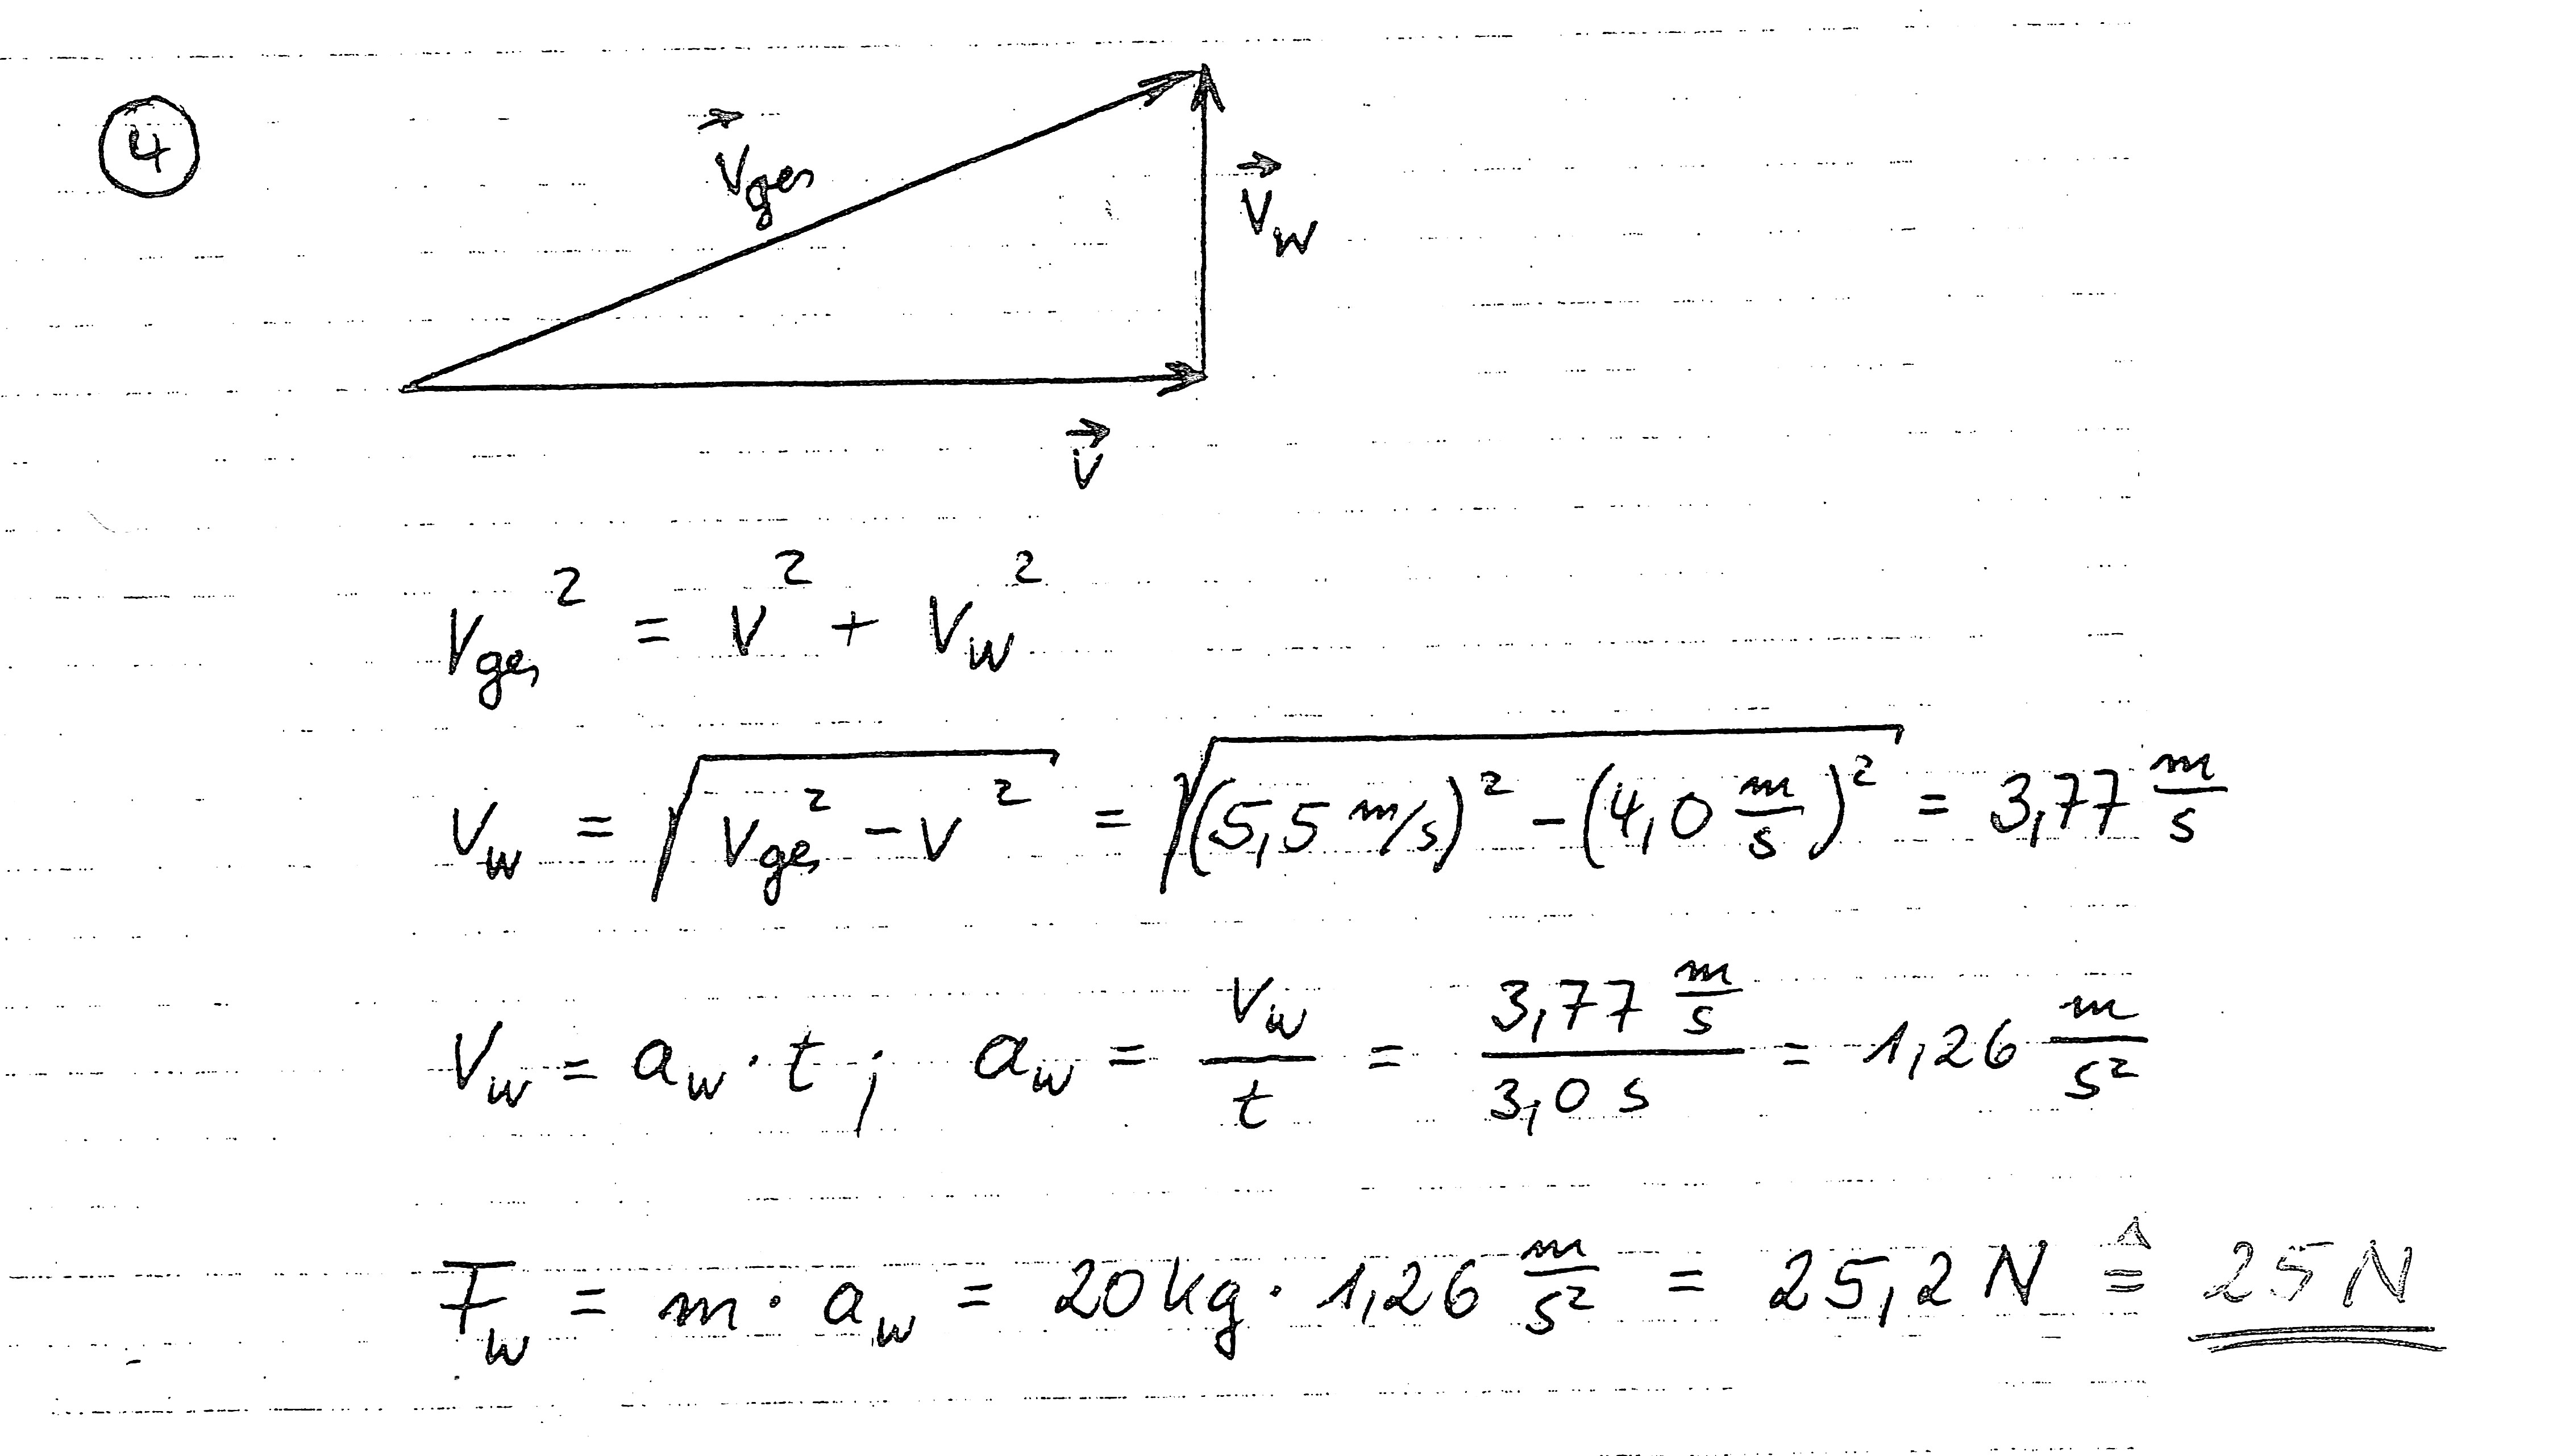 ④
v⃗ges
v⃗w
v⃗
vges² = v² + vw²
vw = √(vges² - v²) = √((5,5 m/s)² - (4,0 m/s)²) = 3,77 m/s
vw = aw · t ; aw = vw/t = (3,77 m/s)/(3,0 s) = 1,26 m/s²
Fw = m · aw = 20 kg · 1,26 m/s² = 25,2 N ≙ 25 N